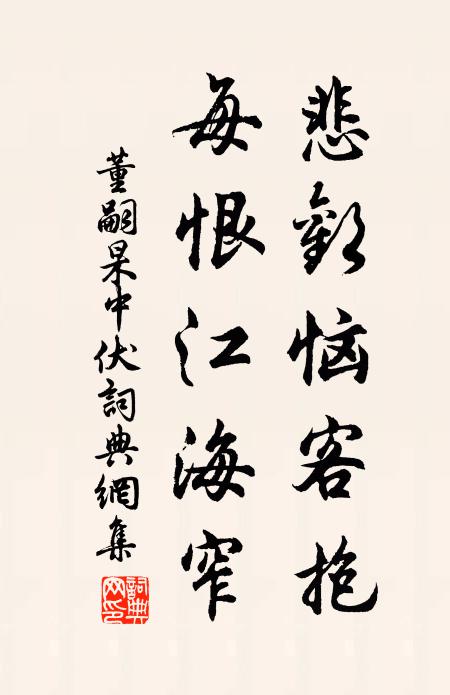 悲歡恼客抱
每恨江海窄
董嗣杲中伏詞典網集
詞典网印